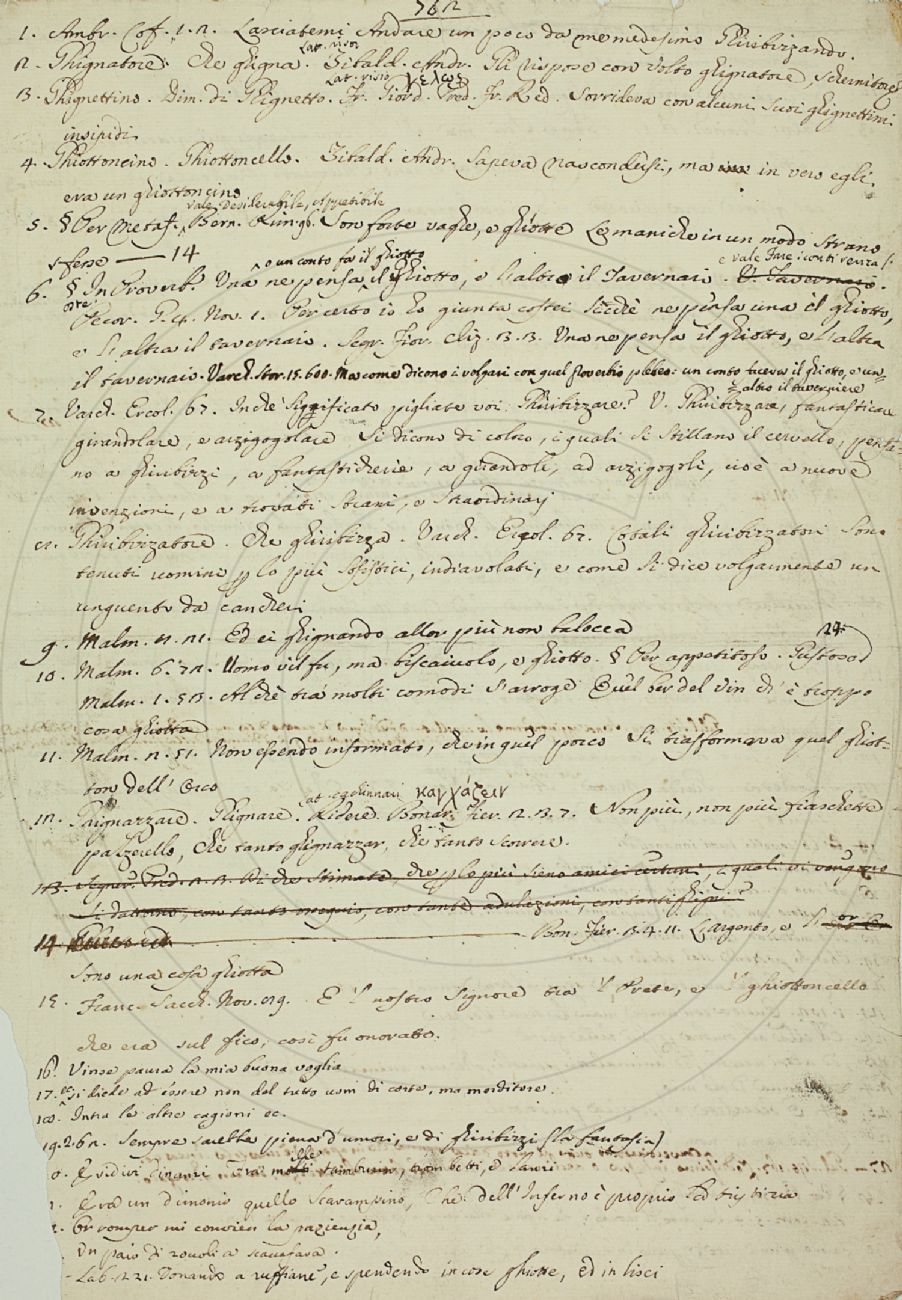 762
1. Ambr. Cof. 1. 2. Lasciatemi Andare un poco da me medesimo Ghiribizzando.
2. Ghignatore. Che ghigna. Lat. risor Zibald. Andr. Gli rispose con volto ghignatore, schernitore
3. Ghignettino. Dim. di Ghignetto. Lat. γέλως Fr. Giord. Pred. Fr. Red. Sorrideva con alcuni suoi ghignettini
insipidi.
4. Ghiottoncino. Ghiottoncello. Zibald. Andr. Sapeva nascondersi, ma in vero egli
era un ghiottoncino
vale desiderabile, appetibile
5. § Per Metaf. Bern. Rim. Son forte vaghe, e ghiotte Le maniche in un modo strano
sfesse —— 14
o un conto fa il ghiotto e vale Fare i conti senza
6. § In Proverb. Una ne pensa il Ghiotto, e l'altra il Tavernaio. V. Tavernaio.
oste
Pecor. G. 4. Nov. 1. Per certo io ho giunta costei Sicchè ne pensa una il ghiotto,
e l'altra il tavernaio. Segr. Fior. Cliz. 3. 3. Una ne pensa il ghiotto, e l'altra
il tavernaio. Varch. Stor. 15. 600. Ma come dicono i volgari con quel proverbio plebeo: un conto faceva il ghiotto, e un-
altro il taverniere
7. Varch. Ercol. 67. In che significato pigliate voi Ghiribizzare? V. Ghiribizzare, fantasticare
girandolare, e arzigogolare si dicono di coloro, i quali si stillano il cervello, pensa-
no a ghiribizzi, a fantasticherie, a girandole, ad arzigogoli, cioè a nuove
invenzioni, e a trovati strani, e straordinarj
8. Ghiribizzatore. Che ghiribizza. Varch. Ercol. 67. Cotali ghiribizzatori sono
tenuti uomini p lo più sofistici, indiavolati, e come si dice volgarmente un
unguento da cancheri
9. Malm. 4. 21. Ed ei ghignando allor più non balocca
24
10. Malm. 6. 72. Uomo vil fu, ma biscaiuolo, e ghiotto. § Per appetitoso. Gustoso
Malm. 1. 53. Al che tra molti comodi s'arroge Quel ber del vin ch'è troppo
cosa ghiotta
11. Malm. 2. 51. Non essendo informato, che in quel porco Si trasformava quel ghiot-
ton dell'Orco
Lat. cachinnari καγχάζειν
12. Sghignazzare. Ghignare. Ridere Bonar. Fier. 2. 3. 7. Non più, non più fiaschette
pazzerello, che tanto ghignazzar, che tanto scorrere.
13. Segner. Pred. 2. 3. Di che stimate, che p lo più sieno amici certuni, i quali vi vengono
con tanto ossequio, con tante adulazioni, con tanti ghigni?
14 —— Bon. Fier. 3. 4. 11. L'argento, e l'or
Sono una cosa ghiotta
15. Franc. Sacch. Nov. 29. E 'l nostro signore tra 'l Prete, e 'l ghiottoncello
che era sul fico, così fu onorato.
16. Vinse paura la mia buona voglia
17. si diede ad essere non del tutto uom di corte, ma morditore.
18. Intra le altre cagioni ec.
19. 262. Sempre sarebbe piena d'umori, e di ghiribizzi (la fantasia)
trombetti, e
Era un dimonio quello Scarampino, Che dell'Inferno è proprio
Or romper mi convien la pazienzia,
Un paio di zoccoli a scaccafava.
Lab. 221. Donando a ruffiane, e spendendo in cose ghiotte, ed in lisci